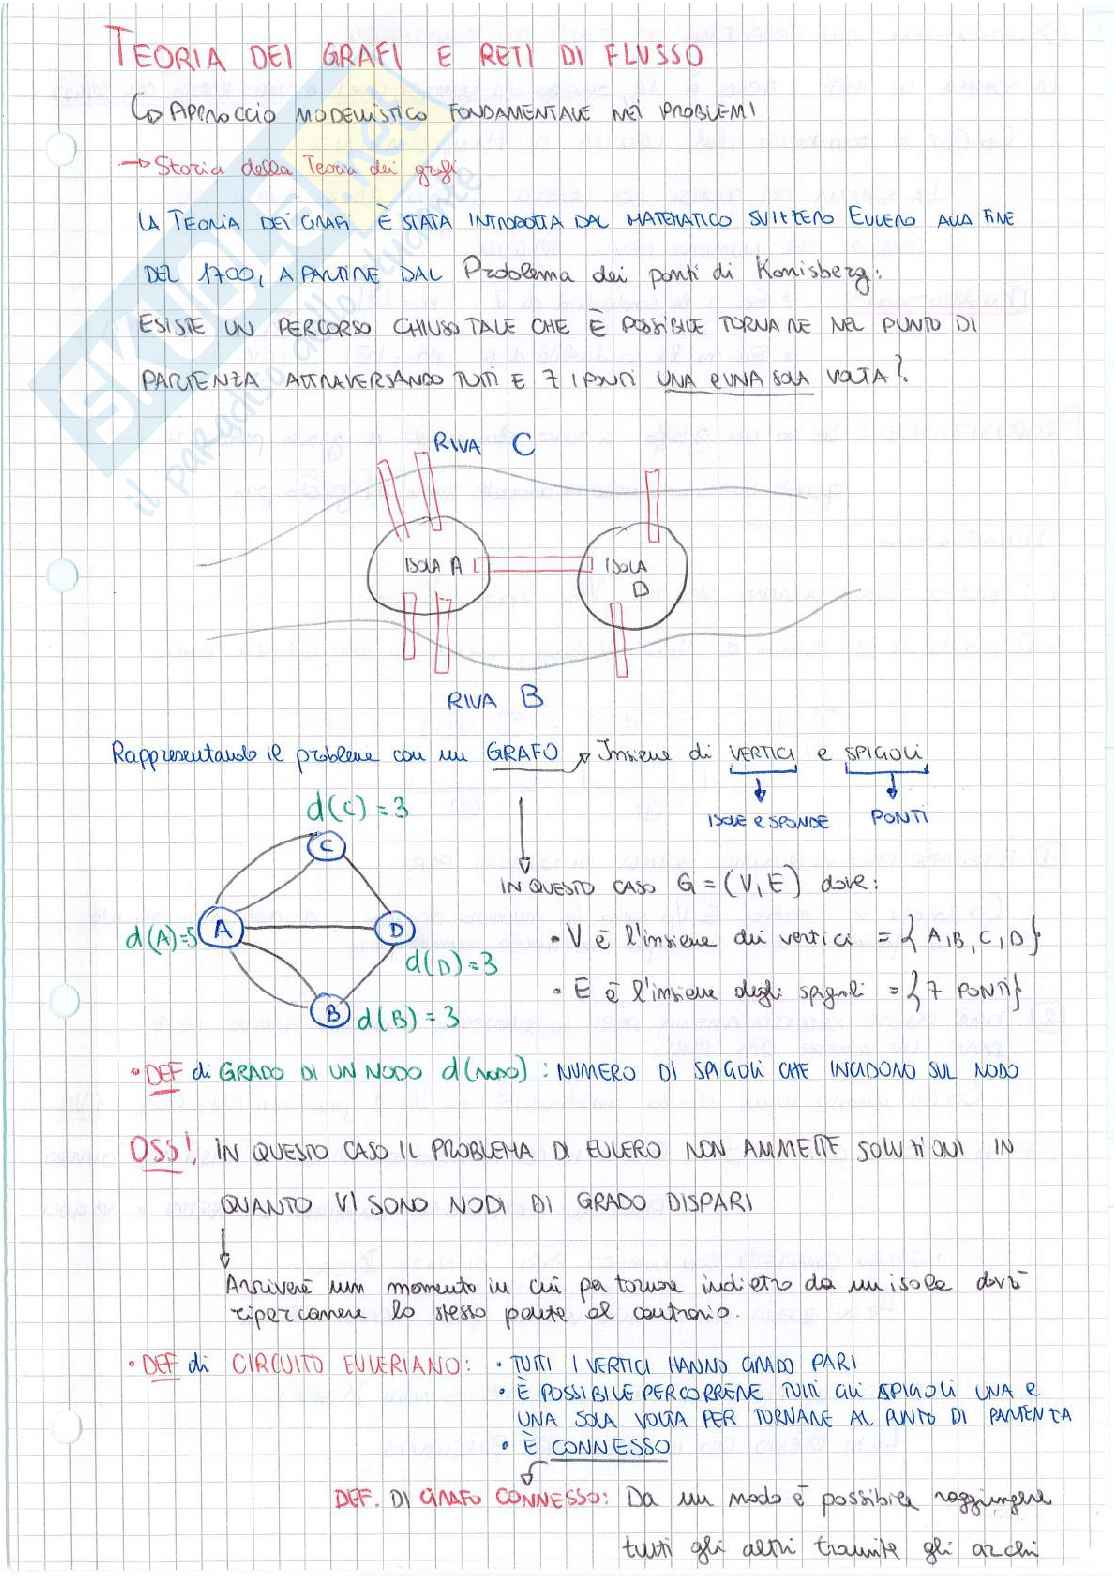 TEORIA DEI GRAFI E RETI DI FLUSSO
↳ APPROCCIO MODELLISTICO FONDAMENTALE NEI PROBLEMI
→ Storia della Teoria dei grafi
LA TEORIA DEI GRAFI È STATA INTRODOTTA DAL MATEMATICO SVIZZERO EULERO ALLA FINE
DEL 1700, A PARTIRE DAL Problema dei ponti di Konisberg:
ESISTE UN PERCORSO CHIUSO TALE CHE È POSSIBILE TORNARE NEL PUNTO DI
PARTENZA ATTRAVERSANDO TUTTI E 7 I PONTI UNA E UNA SOLA VOLTA?
RIVA C
ISOLA A
ISOLA
D
RIVA B
Rappresentando il problema con un GRAFO → Insieme di VERTICI e SPIGOLI
ISOLE e SPONDE PONTI
d(C) = 3
C
IN QUESTO CASO G = (V, E) dove:
d(A)=5 A
D
• V è l'insieme dei vertici = {A, B, C, D}
d(D) = 3
• E è l'insieme degli spigoli = {7 PONTI}
B d(B) = 3
• DEF di GRADO DI UN NODO d(nodo) : NUMERO DI SPIGOLI CHE INCIDONO SUL NODO
OSS! IN QUESTO CASO IL PROBLEMA DI EULERO NON AMMETTE SOLUZIONI IN
QUANTO VI SONO NODI DI GRADO DISPARI
Arriverà un momento in cui per tornare indietro da un isola dovrò
ripercorrere lo stesso ponte al contrario.
• DEF di CIRCUITO EULERIANO: • TUTTI I VERTICI HANNO GRADO PARI
• È POSSIBILE PERCORRERE TUTTI GLI SPIGOLI UNA E
UNA SOLA VOLTA PER TORNARE AL PUNTO DI PARTENZA
• È CONNESSO
DEF. DI GRAFO CONNESSO: Da un nodo è possibile raggiungere
tutti gli altri tramite gli archi